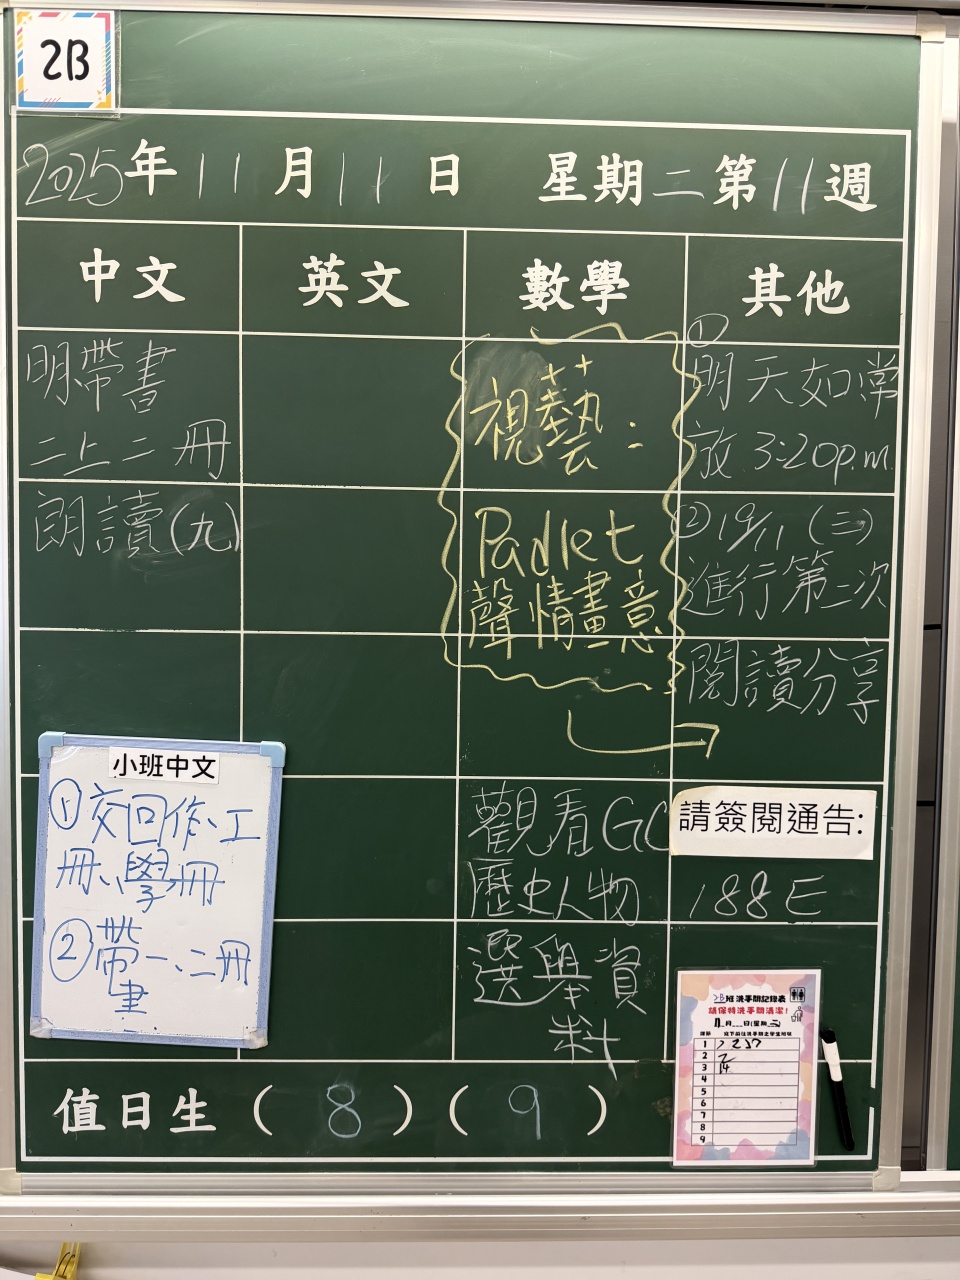 2B
2025年11月11日 星期二第11週
中文 英文 數學 其他
明帶書
二上二冊
朗讀(九)
視藝:
Padlet
聲情畫意
①
明天如常
放3:20p.m.
②19/11(三)
進行第二次
閱讀分享
小班中文
①交回作、工
冊、學冊
②帶一、二冊
書
觀看GC
歷史人物
選舉資
料
請簽閱通告:
188E
2B班洗手間記錄表
請保持洗手間清潔!
1
2
3
4
5
6
7
8
9
值日生(8)(9)